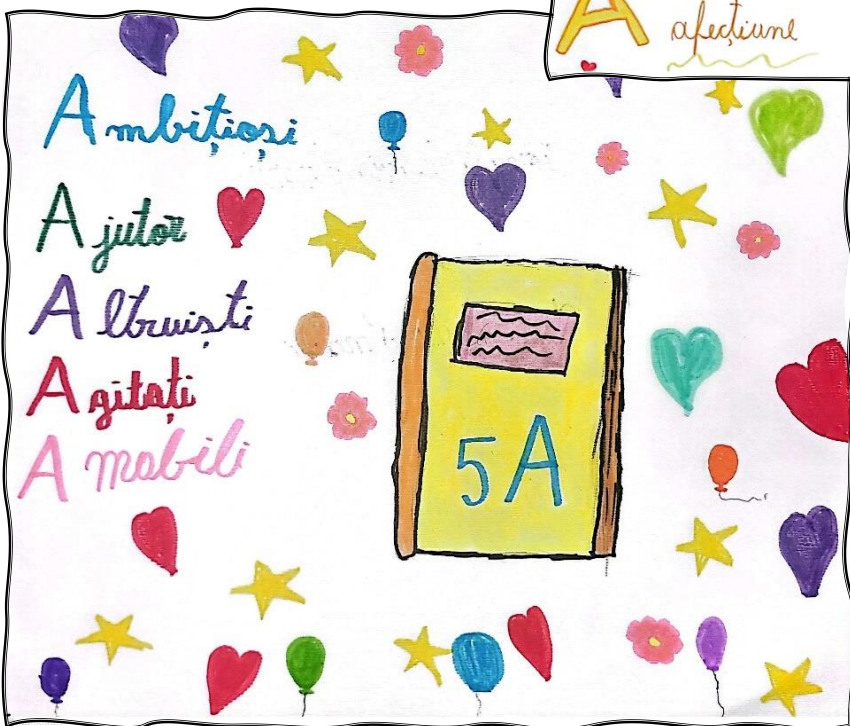 A afecțiune
Ambițioși
Ajutor
Altruiști
Agitați
Amabili
5A